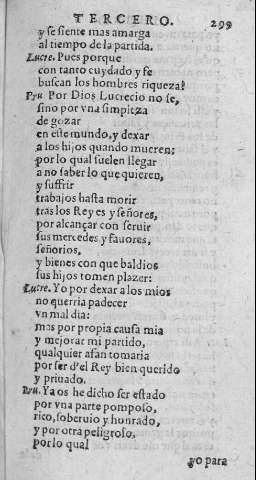 TERCERO. 299
y se siente mas amarga
al tiempo de la partida.
Lucre. Pues porque
con tanto cuydado y fe
buscan los hombres riqueza?
Pru. Por Dios Lucrecio no se,
sino por vna simpleza
de gozar
en este mundo, y dexar
a los hijos quando mueren:
por lo qual suelen llegar
a no saber lo que quieren,
y suffrir
trabajos hasta morir
tras los Reyes y señores,
por alcançar con seruir
sus mercedes y fauores,
señorios,
y bienes con que baldios
sus hijos tomen plazer:
Lucre. Yo por dexar a los mios
no querria padecer
vn mal dia:
mas por propia causa mia
y mejorar mi partido,
qualquier afan tomaria
por ser d'el Rey bien querido
y priuado.
Pru. Ya os he dicho ser estado
por vna parte pomposo,
rico, soberuio y honrado,
y por otra peligroso,
por lo qual
yo para